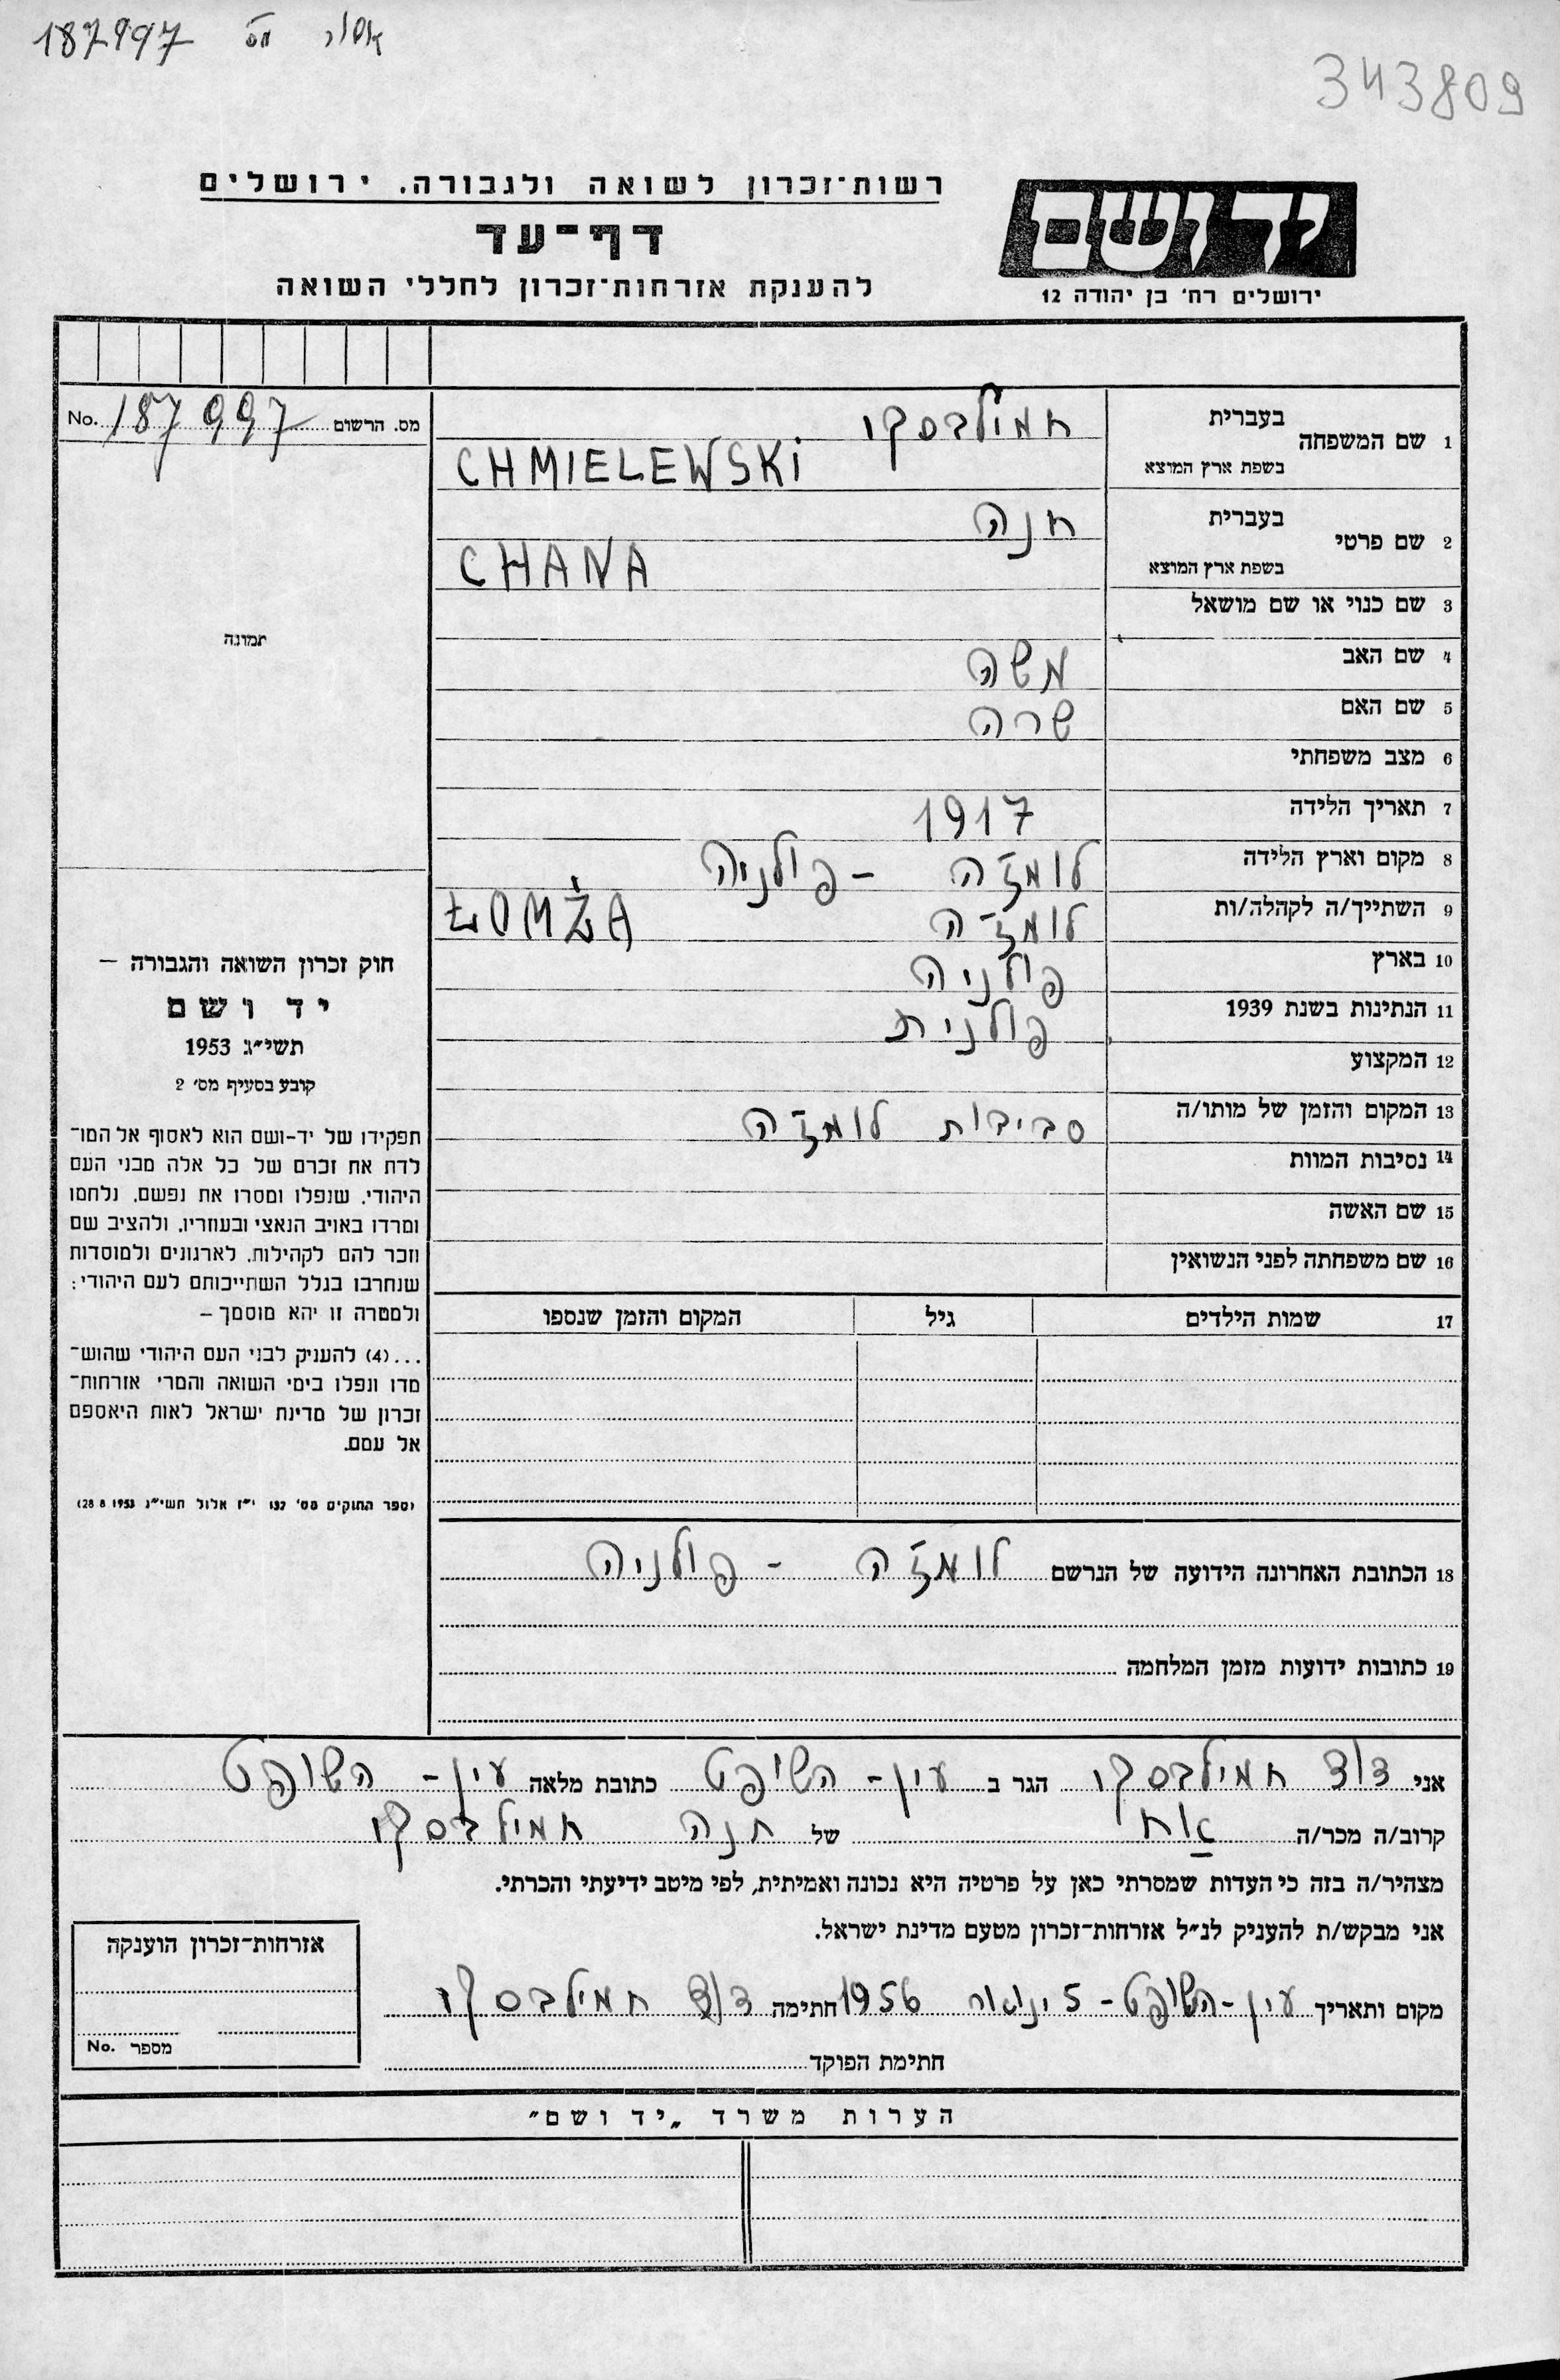 187997 מס אסור
343809
רשות־זכרון לשואה ולגבורה. ירושלים
דף־עד
להענקת אזרחות־זכרון לחללי השואה
יד ושם
ירושלים רח׳ בן יהודה 12
מס. הרשום 187997 No.
1 שם המשפחה
בעברית חמילבסקי
בשפת ארץ המוצא CHMIELEWSKI
2 שם פרטי
בעברית חנה
בשפת ארץ המוצא CHANA
3 שם כנוי או שם מושאל
4 שם האב משה
5 שם האם שרה
6 מצב משפחתי
7 תאריך הלידה 1917
8 מקום וארץ הלידה לומז׳ה - פולניה
9 השתייך/ה לקהלה/ות לומז׳ה ŁOMŻA
10 בארץ פולניה
11 הנתינות בשנת 1939 פולנית
12 המקצוע
13 המקום והזמן של מותו/ה סביבות לומז׳ה
14 נסיבות המוות
15 שם האשה
16 שם משפחתה לפני הנשואין
17 שמות הילדים גיל המקום והזמן שנספו
תמונה
חוק זכרון השואה והגבורה —
יד ושם
תשי״ג 1953
קובע בסעיף מס׳ 2
תפקידו של יד-ושם הוא לאסוף אל המו־
לדת את זכרם של כל אלה מבני העם
היהודי, שנפלו ומסרו את נפשם, נלחמו
ומרדו באויב הנאצי ובעוזריו, ולהציב שם
וזכר להם לקהילות, לארגונים ולמוסדות
שנחרבו בגלל השתייכותם לעם היהודי:
ולמטרה זו יהא מוסמך —
...(4) להעניק לבני העם היהודי שהוש־
מדו ונפלו בימי השואה והמרי אזרחות־
זכרון של מדינת ישראל לאות היאספם
אל עמם.
(ספר החוקים מס׳ 132 י״ז אלול תשי״ג 28.8.1953)
18 הכתובת האחרונה הידועה של הנרשם לומז׳ה - פולניה
19 כתובות ידועות מזמן המלחמה
אני דוד חמילבסקי הגר ב עין-השופט כתובת מלאה עין-השופט
קרוב/ה מכר/ה אח של חנה חמילבסקי
מצהיר/ה בזה כי העדות שמסרתי כאן על פרטיה היא נכונה ואמיתית, לפי מיטב ידיעתי והכרתי.
אני מבקש/ת להעניק לנ״ל אזרחות־זכרון מטעם מדינת ישראל.
מקום ותאריך עין-השופט - 5 ינואר 1956 חתימה דוד חמילבסקי
חתימת הפוקד
אזרחות־זכרון הוענקה
מספר No.
הערות משרד „יד ושם״